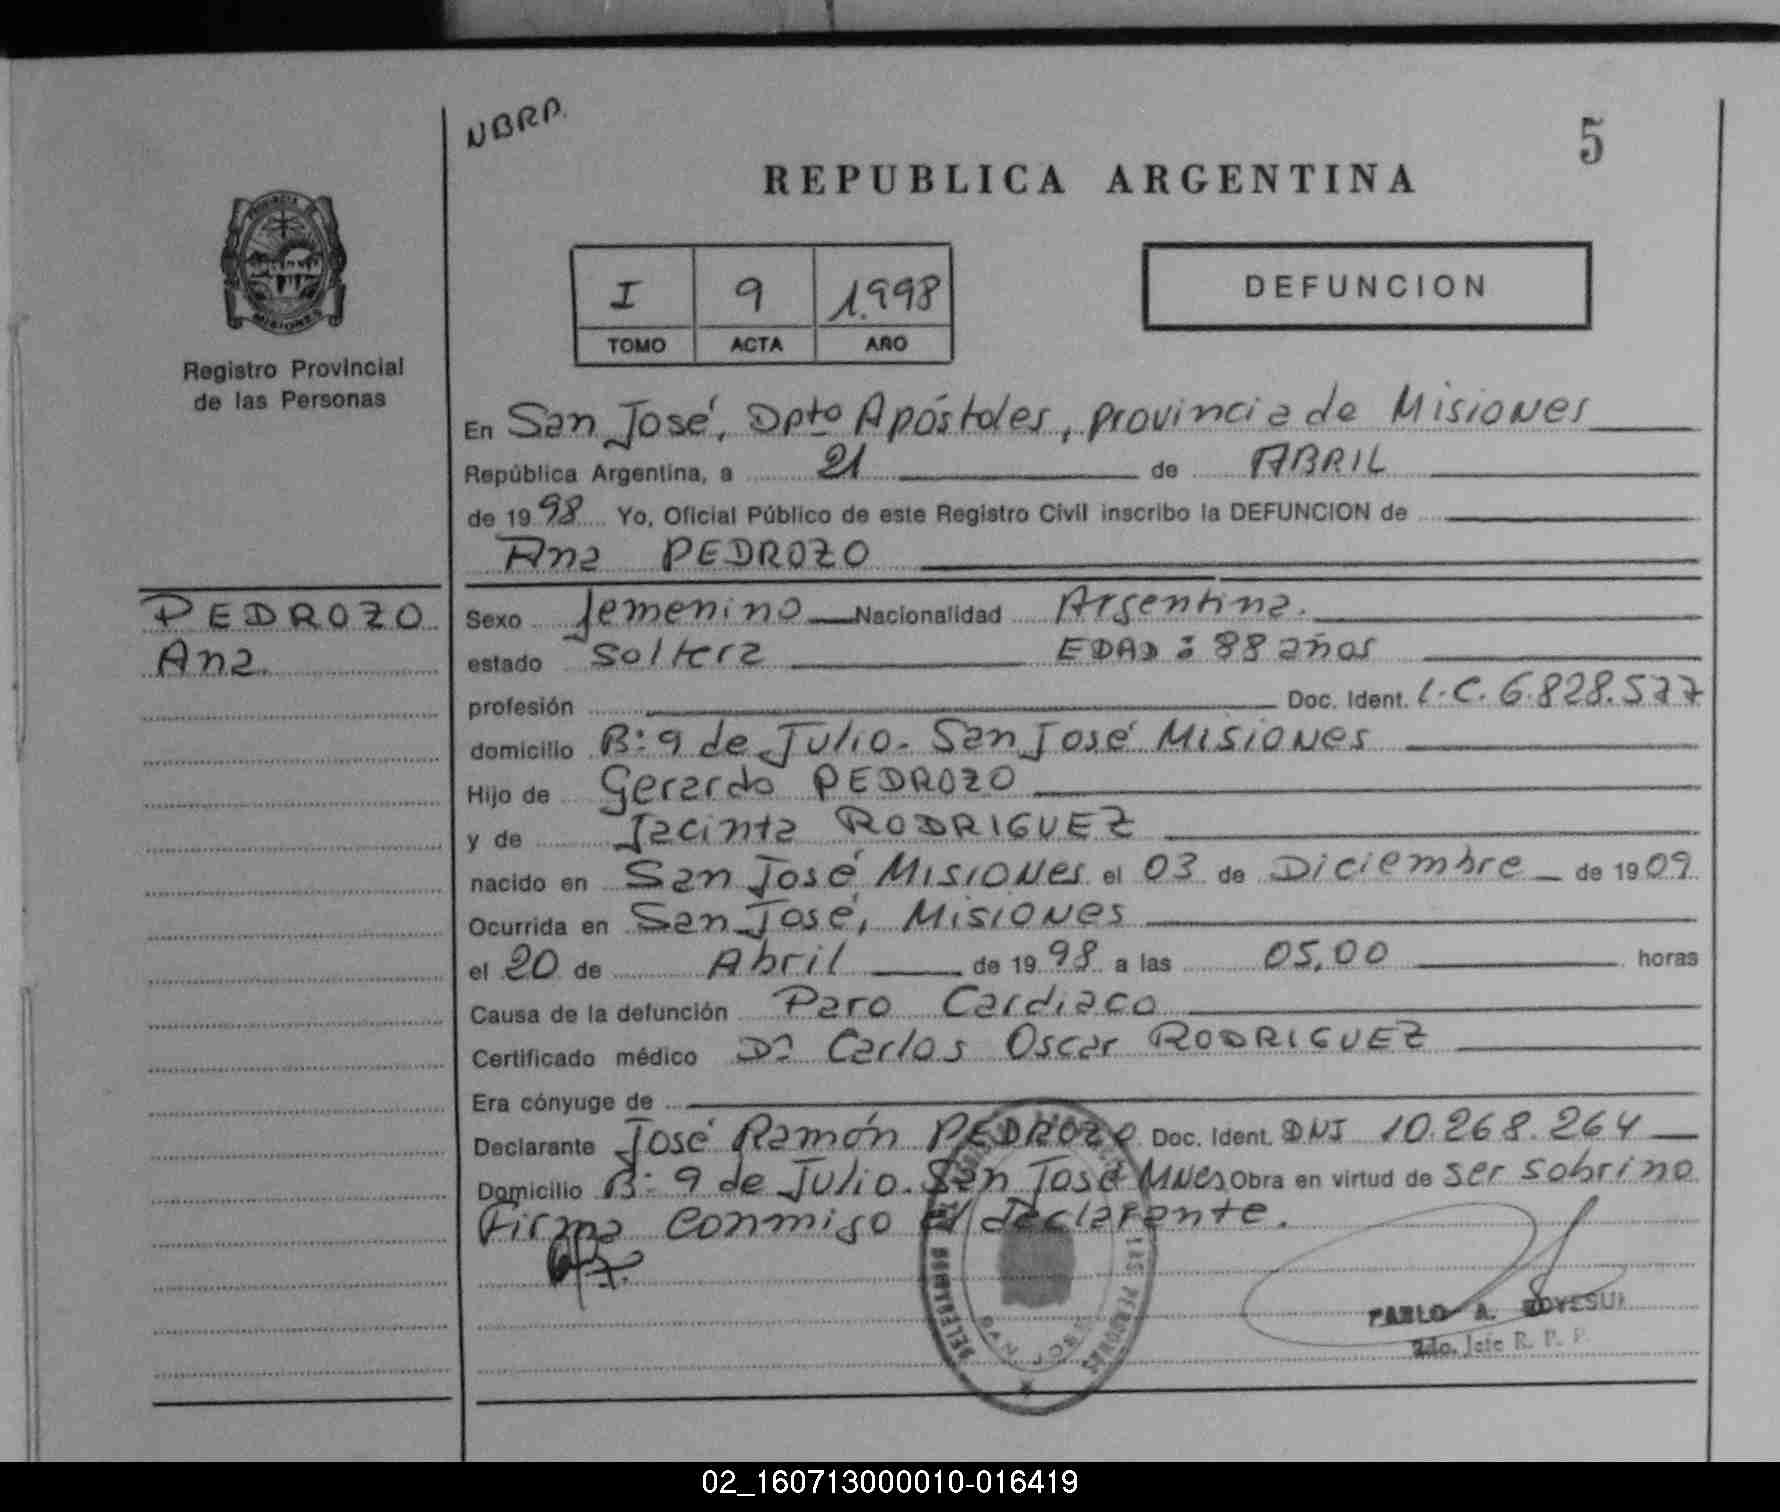 NBRP.
5
REPUBLICA ARGENTINA
PROVINCIA DE
MISIONES
I 9 1.998
TOMO ACTA AÑO
DEFUNCION
Registro Provincial
de las Personas
En San José, Dpto Apóstoles, provincia de Misiones
República Argentina, a 21 de ABRIL
de 1998 Yo, Oficial Público de este Registro Civil inscribo la DEFUNCION de
Ana PEDROZO
PEDROZO
Ana
Sexo femenino Nacionalidad Argentina.
estado soltera EDAD: 88 años
profesión Doc. Ident. L.C. 6.828.577
domicilio B: 9 de Julio. San José Misiones
Hijo de Gerardo PEDROZO
y de Jacinta RODRIGUEZ
nacido en San José Misiones el 03 de Diciembre de 1909.
Ocurrida en San José, Misiones
el 20 de Abril de 1998 a las 05,00 horas
Causa de la defunción Paro Cardiaco
Certificado médico Dr Carlos Oscar RODRIGUEZ
Era cónyuge de
Declarante José Ramón PEDROZO Doc. Ident. DNI 10.268.264
Domicilio B: 9 de Julio. San José Mnes Obra en virtud de ser sobrino
Firma conmigo el declarante.
LAS PERSONAS
SAN JOSE
PABLO A.
2do. Jefe R. P. P.
02_160713000010-016419